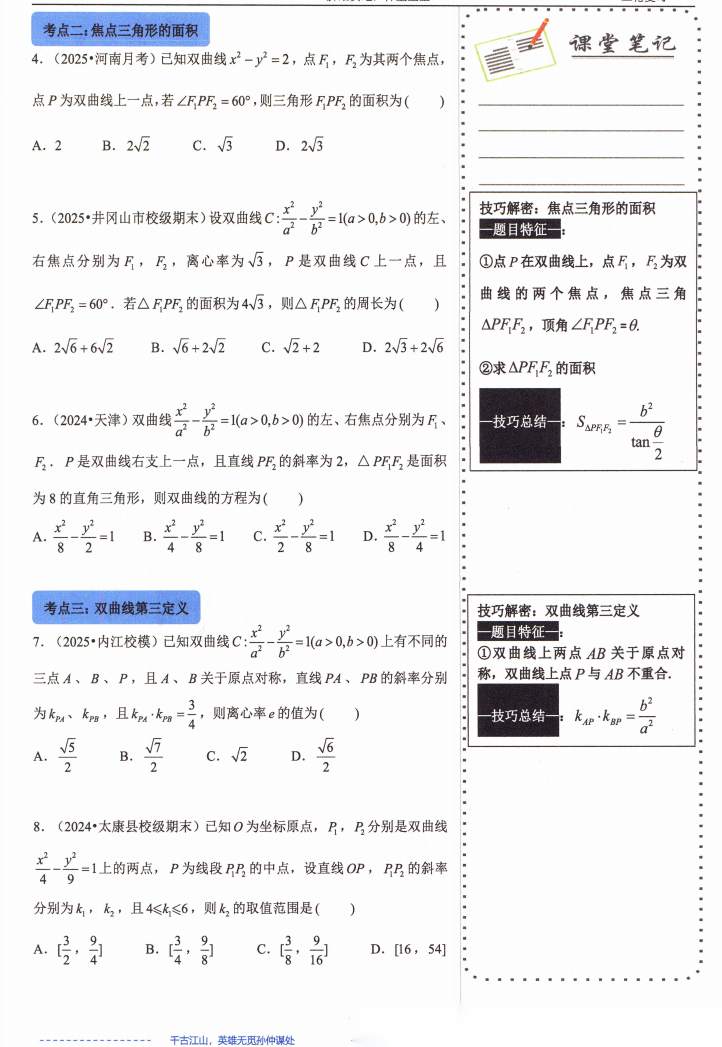 考点二：焦点三角形的面积
4．（2025•河南月考）已知双曲线 x² − y² = 2，点 F₁，F₂为其两个焦点，
点 P 为双曲线上一点，若 ∠F₁PF₂ = 60°，则三角形 F₁PF₂ 的面积为(　　)
A．2　B．2√2　C．√3　D．2√3
5．（2025•井冈山市校级期末）设双曲线 C: x²/a² − y²/b² = 1(a > 0, b > 0) 的左、
右焦点分别为 F₁，F₂，离心率为 √3，P 是双曲线 C 上一点，且
∠F₁PF₂ = 60°．若△F₁PF₂ 的面积为 4√3，则△F₁PF₂ 的周长为(　　)
A．2√6 + 6√2　B．√6 + 2√2　C．√2 + 2　D．2√3 + 2√6
6．（2024•天津）双曲线 x²/a² − y²/b² = 1(a > 0, b > 0) 的左、右焦点分别为 F₁、
F₂．P 是双曲线右支上一点，且直线 PF₂ 的斜率为 2，△PF₁F₂ 是面积
为 8 的直角三角形，则双曲线的方程为(　　)
A．x²/8 − y²/2 = 1　B．x²/4 − y²/8 = 1　C．x²/2 − y²/8 = 1　D．x²/8 − y²/4 = 1
考点三：双曲线第三定义
7．（2025•内江校模）已知双曲线 C: x²/a² − y²/b² = 1(a > 0, b > 0) 上有不同的
三点 A、B、P，且 A、B 关于原点对称，直线 PA、PB 的斜率分别
为 k_PA、k_PB，且 k_PA · k_PB = 3/4，则离心率 e 的值为(　　)
A．√5/2　B．√7/2　C．√2　D．√6/2
8．（2024•太康县校级期末）已知 O 为坐标原点，P₁，P₂ 分别是双曲线
x²/4 − y²/9 = 1 上的两点，P 为线段 P₁P₂ 的中点，设直线 OP，P₁P₂ 的斜率
分别为 k₁，k₂，且 4⩽k₁⩽6，则 k₂ 的取值范围是(　　)
A．[3/2，9/4]　B．[3/4，9/8]　C．[3/8，9/16]　D．[16，54]
课堂笔记
技巧解密：焦点三角形的面积
题目特征：
①点 P 在双曲线上，点 F₁，F₂ 为双
曲线的两个焦点，焦点三角
△PF₁F₂，顶角 ∠F₁PF₂ = θ.
②求 △PF₁F₂ 的面积
技巧总结：S_△PF₁F₂ = b²/tan(θ/2)
技巧解密：双曲线第三定义
题目特征：
①双曲线上两点 AB 关于原点对
称，双曲线上点 P 与 AB 不重合.
技巧总结：k_AP · k_BP = b²/a²
千古江山，英雄无觅孙仲谋处